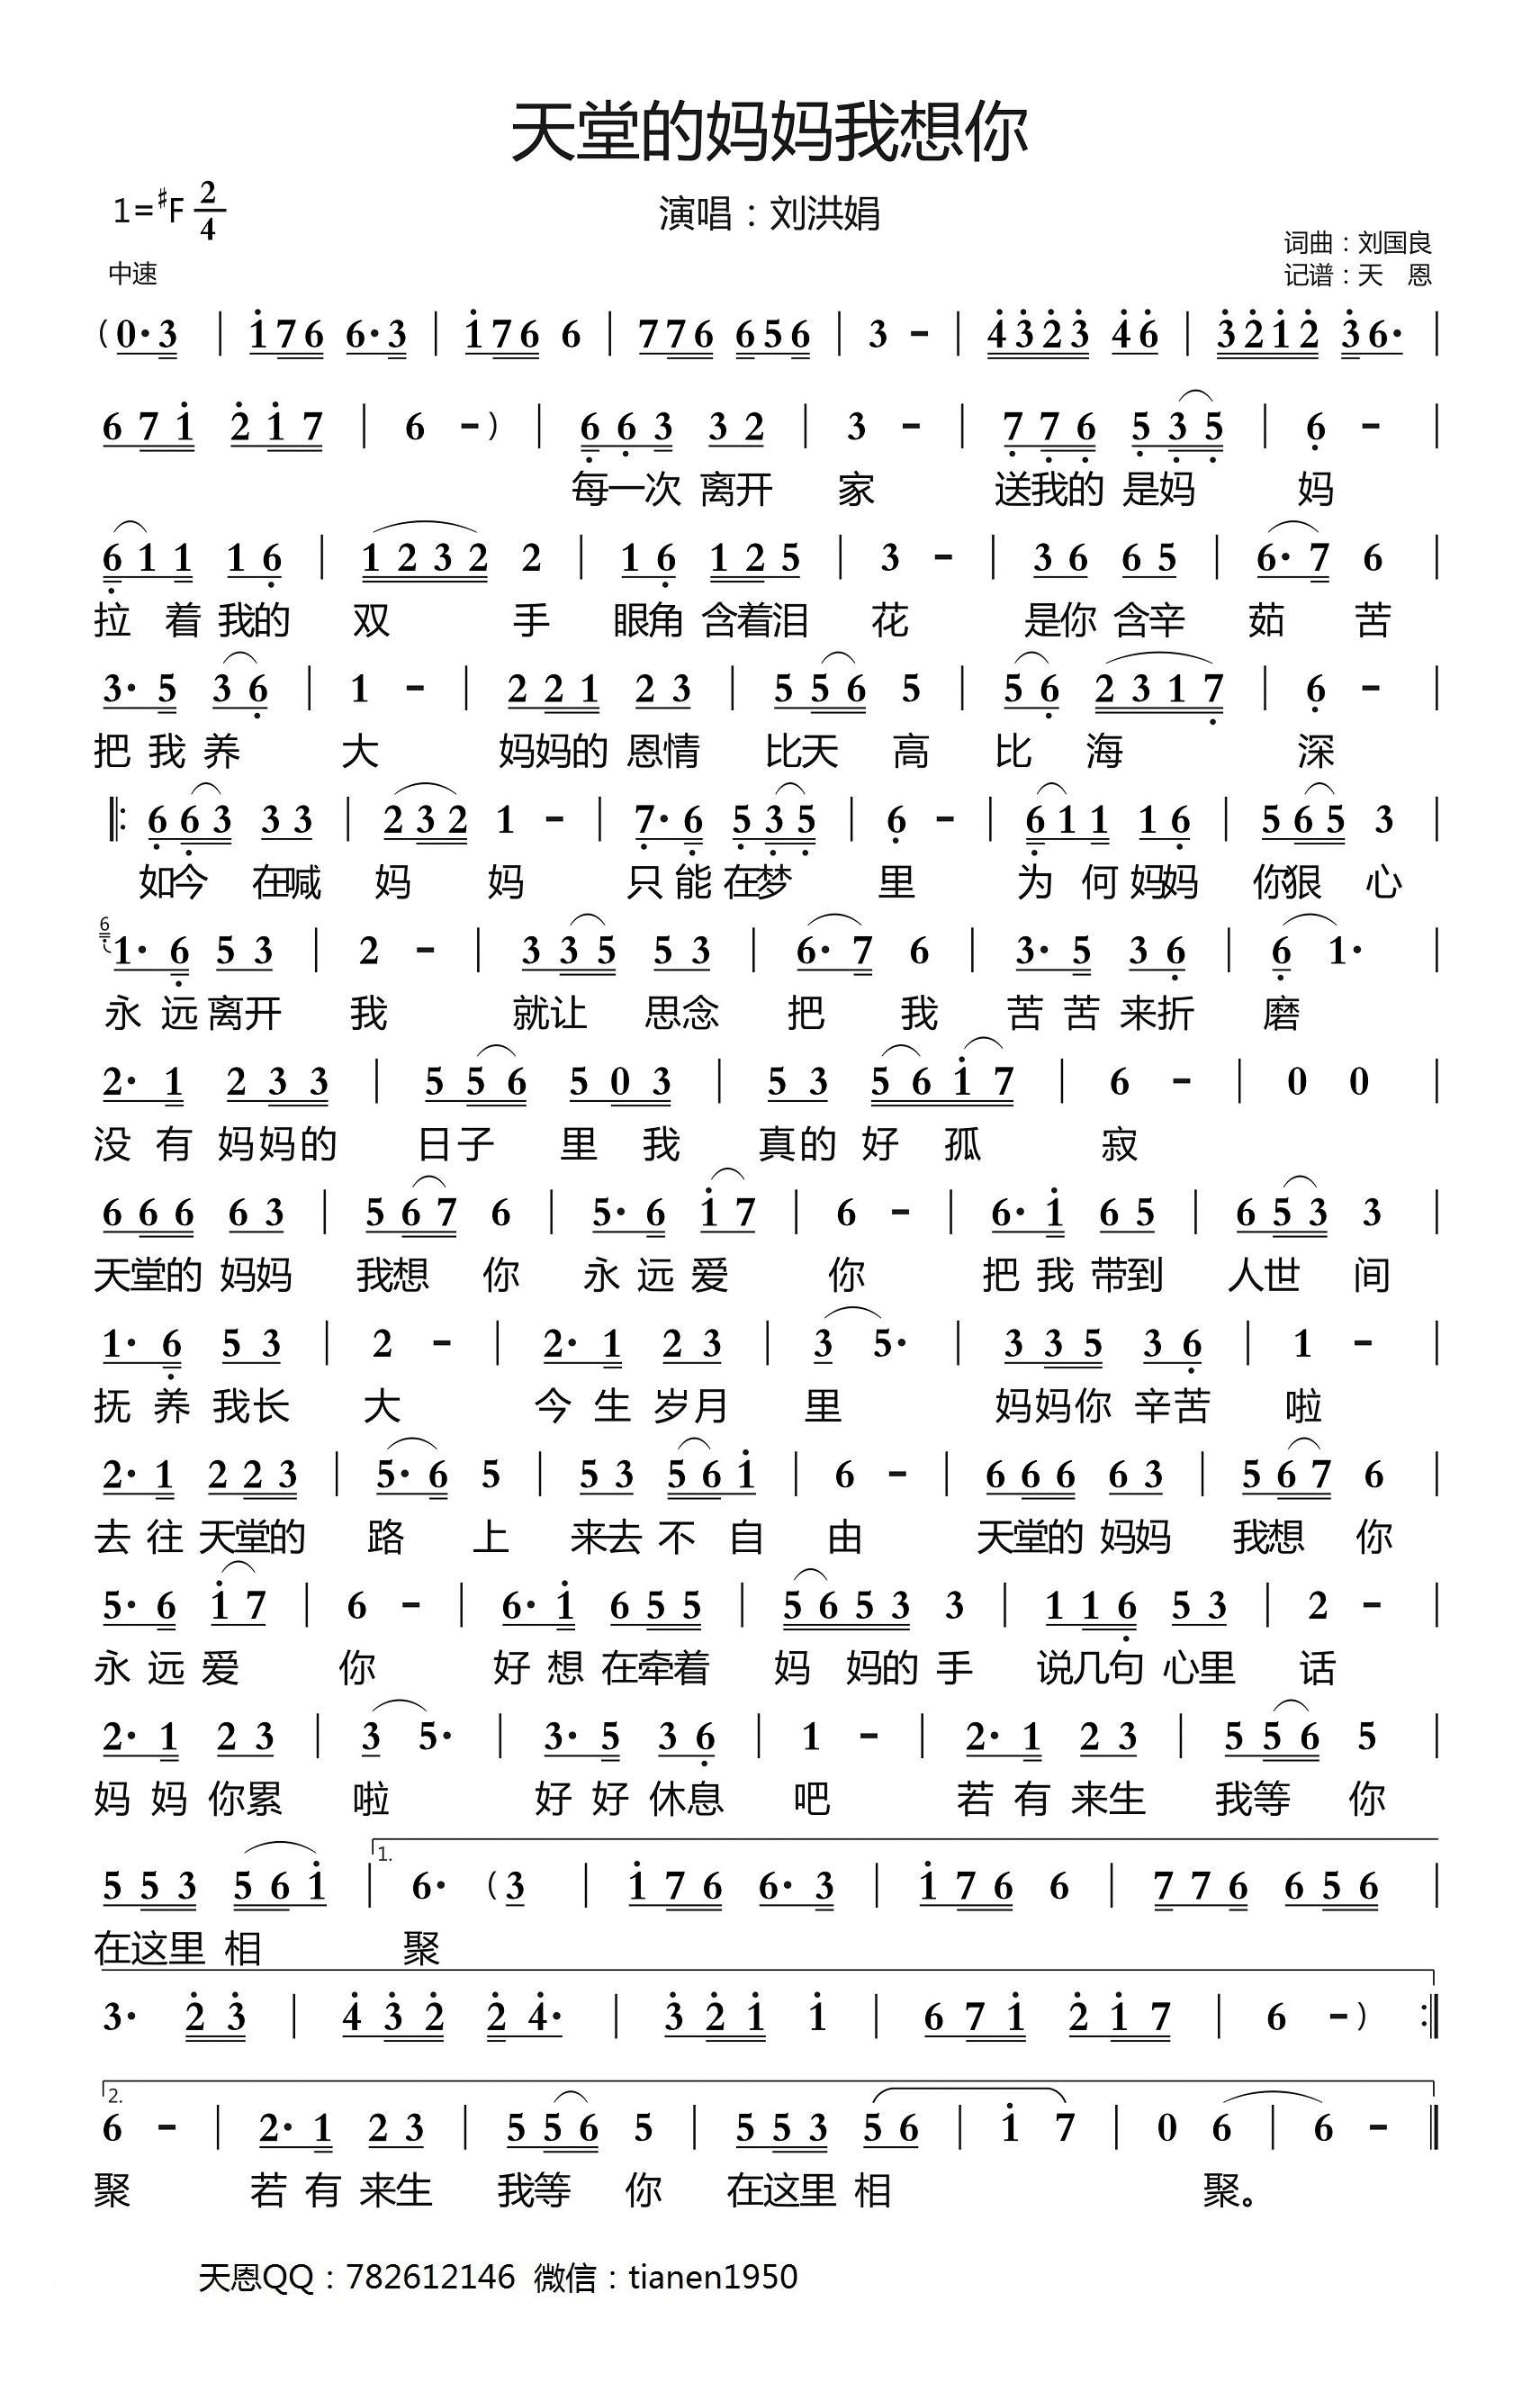 天堂的妈妈我想你
1=♯F 2/4
演唱：刘洪娟
词曲：刘国良
中速
记谱：天 恩
(0·3 | i76 6·3 | i76 6 | 776 656 | 3 - | 4̇3̇2̇3̇ 4̇6̇ | 3̇2̇i2̇ 3̇6· |
67i 2̇i7 | 6 -) | 6̣6̣3 32 | 3 - | 7̣7̣6̣ 5̣3̣5̣ | 6̣ - |
每一次 离开 家 送我的 是妈 妈
6̣11 16̣ | 1232 2 | 16̣ 125 | 3 - | 36 65 | 6·7 6 |
拉 着 我的 双 手 眼角 含着泪 花 是你 含辛 茹 苦
3·5 36̣ | 1 - | 221 23 | 556 5 | 56̣ 2317̣ | 6̣ - |
把 我 养 大 妈妈的 恩情 比天 高 比 海 深
‖: 6̣6̣3 33 | 232 1 - | 7̣·6̣ 5̣3̣5̣ | 6̣ - | 6̣11 16̣ | 565 3 |
如今 在喊 妈 妈 只 能 在梦 里 为 何 妈妈 你狠 心
6̣ 1·6̣ 53 | 2 - | 335 53 | 6·7 6 | 3·5 36̣ | 6̣ 1· |
永 远 离开 我 就让 思念 把 我 苦 苦 来折 磨
2·1 233 | 556 503 | 53 56i7 | 6 - | 0 0 |
没 有 妈妈的 日子 里 我 真的 好 孤 寂
666 63 | 567 6 | 5·6 i7 | 6 - | 6·i 65 | 653 3 |
天堂的 妈妈 我想 你 永 远 爱 你 把 我 带到 人世 间
1·6̣ 53 | 2 - | 2·1 23 | 3 5· | 335 36̣ | 1 - |
抚 养 我长 大 今 生 岁月 里 妈妈你 辛苦 啦
2·1 223 | 5·6 5 | 53 56i | 6 - | 666 63 | 567 6 |
去 往 天堂的 路 上 来去 不 自 由 天堂的 妈妈 我想 你
5·6 i7 | 6 - | 6·i 655 | 5653 3 | 116̣ 53 | 2 - |
永 远 爱 你 好 想 在牵着 妈 妈的 手 说几句 心里 话
2·1 23 | 3 5· | 3·5 36̣ | 1 - | 2·1 23 | 556 5 |
妈 妈 你累 啦 好 好 休息 吧 若 有 来生 我等 你
553 56i | 1. 6· (3 | i76 6·3 | i76 6 | 776 656 |
在这里 相 聚
3· 2̇3̇ | 4̇3̇2̇ 2̇4̇· | 3̇2̇i i | 67i 2̇i7 | 6 -) :‖
2. 6 - | 2·1 23 | 556 5 | 553 56 | i 7 | 0 6 | 6 - ‖
聚 若 有 来生 我等 你 在这里 相 聚。
天恩QQ：782612146 微信：tianen1950